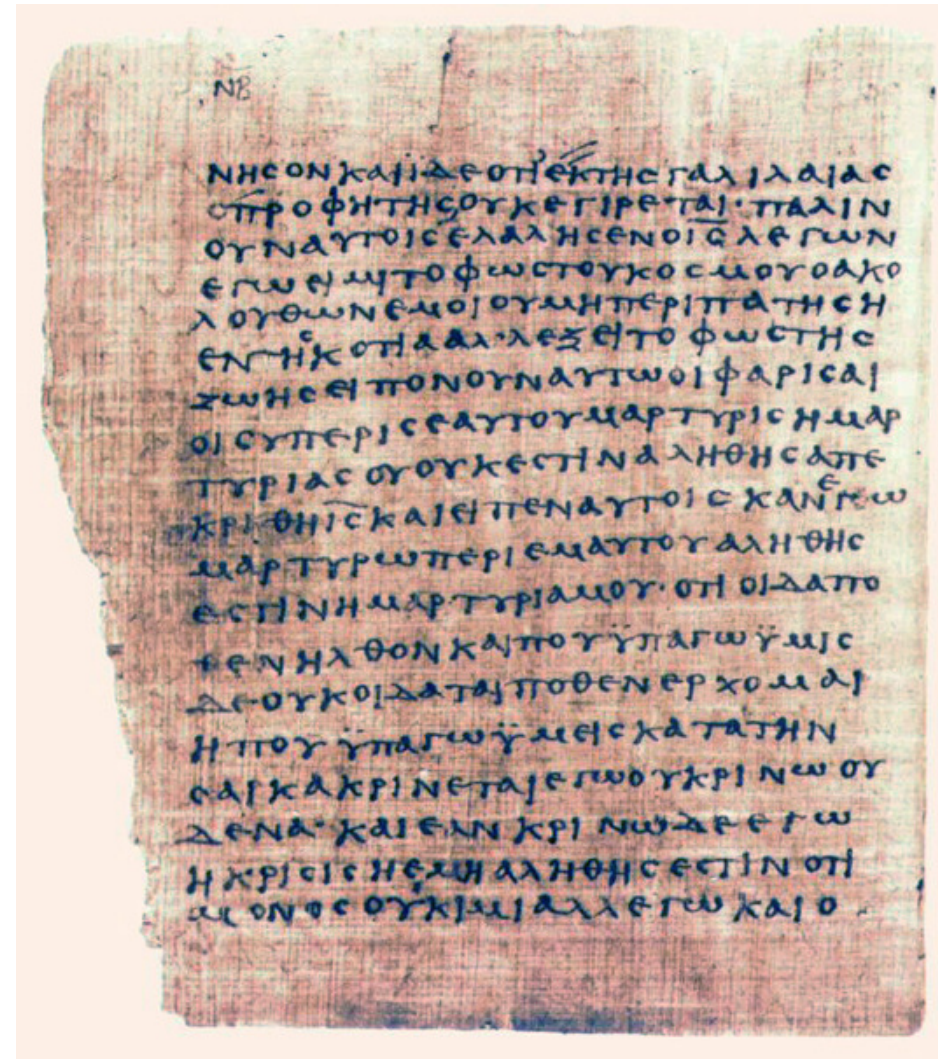 ΝΒ
ΝΗϹΟΝΚΑΙΪΔΕΟΤΙʼΕΚΤΗϹΓΑΛΙΛΑΙΑϹ
ΟΠΡΟΦΗΤΗϹΟΥΚΕΓΙΡΕΤΑΙ·ΠΑΛΙΝ
ΟΥΝΑΥΤΟΙϹΕΛΑΛΗϹΕΝΟΙ̅Ϲ̅ΛΕΓΩΝ
ΕΓΩΕΙΜΙΤΟΦΩϹΤΟΥΚΟϹΜΟΥΟΑΚΟ
ΛΟΥΘΩΝΕΜΟΙΟΥΜΗΠΕΡΙΠΑΤΗϹΗ
ΕΝΤΗϹΚΟΤΙΑΑΛ·ΛΕΞΕΙΤΟΦΩϹΤΗϹ
ΖΩΗϹΕΙΠΟΝΟΥΝΑΥΤΩΟΙΦΑΡΙϹΑΙ
ΟΙϹΥΠΕΡΙϹΕΑΥΤΟΥΜΑΡΤΥΡΙϹΗΜΑΡ
ΤΥΡΙΑϹΟΥΟΥΚΕϹΤΙΝΑΛΗΘΗϹΑΠΕ
ΚΡΙΘΗΙ̅Ϲ̅ΚΑΙΕΙΠΕΝΑΥΤΟΙϹΚΑΝΕΓΩ
ΜΑΡΤΥΡΩΠΕΡΙΕΜΑΥΤΟΥΑΛΗΘΗϹ
ΕϹΤΙΝΗΜΑΡΤΥΡΙΑΜΟΥ·ΟΤΙΟΙΔΑΠΟ
ΘΕΝΗΛΘΟΝΚΑΙΠΟΥΫΠΑΓΩΫΜΙϹ
ΔΕΟΥΚΟΙΔΑΤΑΙΠΟΘΕΝΕΡΧΟΜΑΙ
ΗΠΟΥΫΠΑΓΩΫΜΕΙϹΚΑΤΑΤΗΝ
ϹΑΡΚΑΚΡΙΝΕΤΑΙΕΓΩΟΥΚΡΙΝΩΟΥ
ΔΕΝΑ·ΚΑΙΕΑΝΚΡΙΝΩΔΕΕΓΩ
ΗΚΡΙϹΙϹΗΕΜΗΑΛΗΘΗϹΕϹΤΙΝΟΤΙ
ΜΟΝΟϹΟΥΚΙΜΙΑΛΛΕΓΩΚΑΙΟ